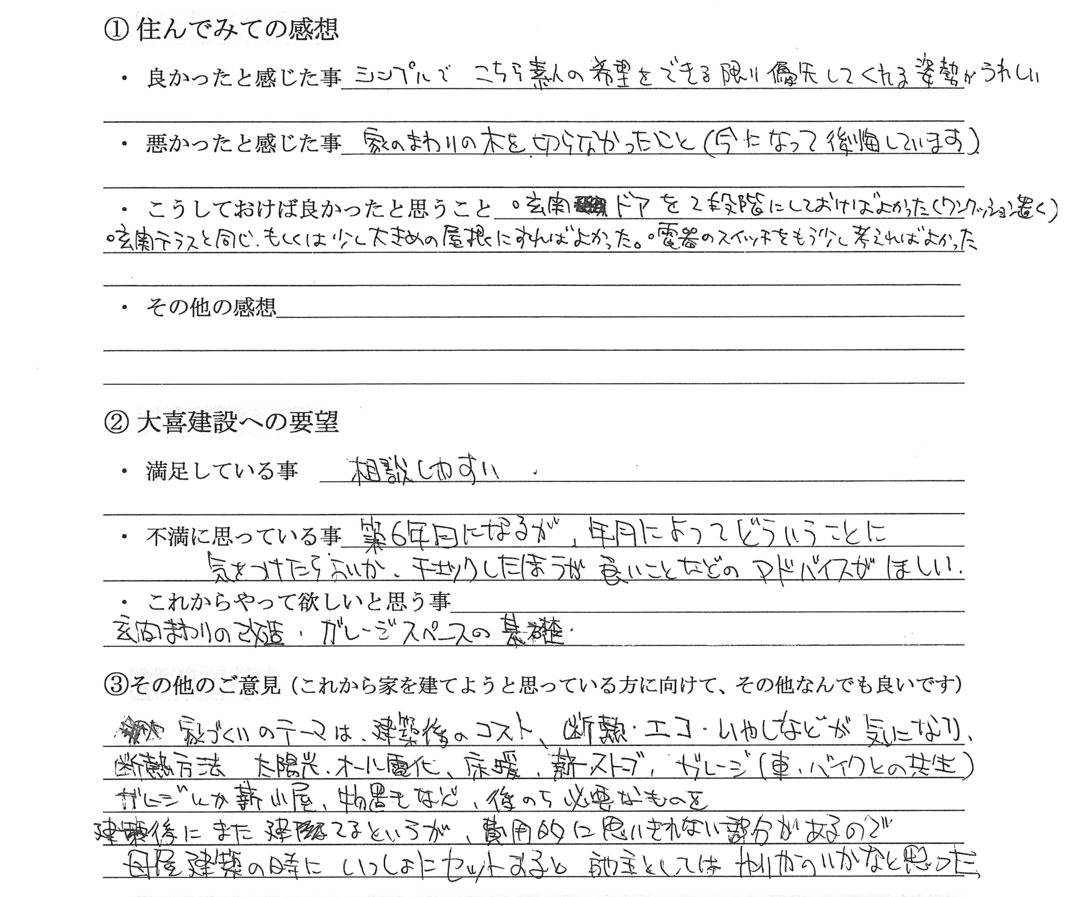 ① 住んでみての感想
・ 良かったと感じた事 シンプルで こちら素人の希望をできる限り優先してくれる姿勢がうれしい
・ 悪かったと感じた事 家のまわりの木を切らなかったこと(今になって後悔しています)
・ こうしておけば良かったと思うこと 。玄関 ドアを2段階にしておけばよかった(ワンクッション置く)
。玄関テラスと同じ、もしくは少し大きめの屋根にすればよかった。。電器のスイッチをもう少し考えればよかった
・ その他の感想
② 大喜建設への要望
・ 満足している事 相談しやすい
・ 不満に思っている事 築6年目になるが、年月によってどういうことに
気をつけたらよいか、チェックしたほうが良いことなどのアドバイスがほしい.
・ これからやって欲しいと思う事
玄関まわりの改造・ガレージスペースの基礎・
③その他のご意見(これから家を建てようと思っている方に向けて、その他なんでも良いです)
家づくりのテーマは、建築後のコスト、断熱・エコ・いやしなどが気になり、
断熱方法 太陽光、オール電化、床暖、薪ストーブ、ガレージ(車、バイクとの共生)
ガレージ 薪小屋、物置 など、後のち必要なものを
建築後にまた建てるというが、費用的に思いきれない部分があるので
母屋建築の時にいっしょにセットすると 施主としては かなと思った、